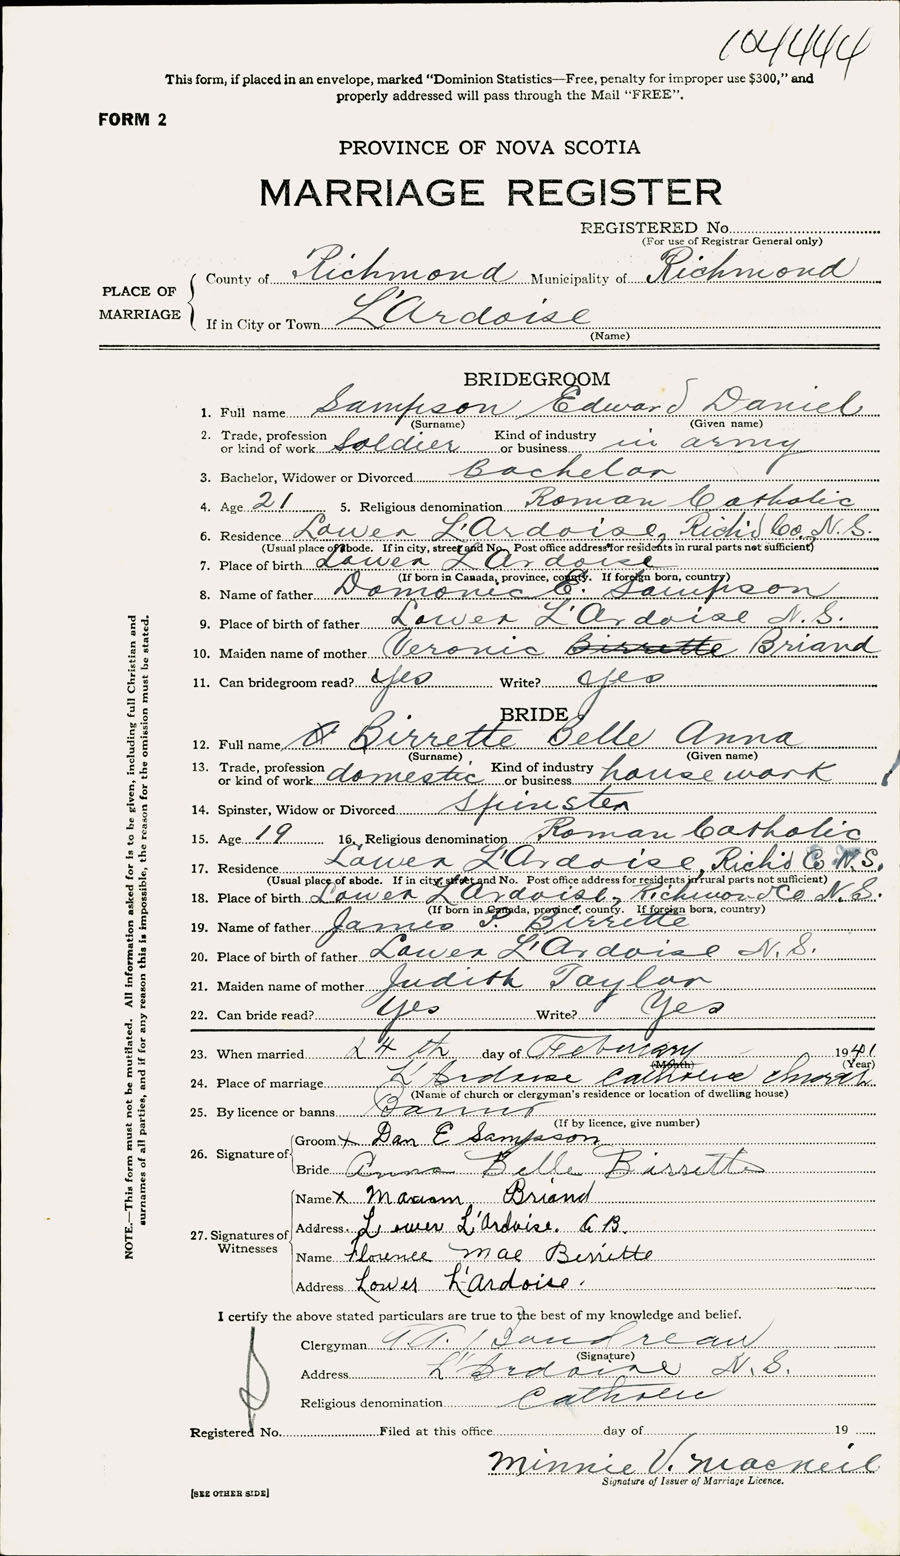 104444
This form, if placed in an envelope, marked "Dominion Statistics—Free, penalty for improper use $300," and
properly addressed will pass through the Mail "FREE".
FORM 2
PROVINCE OF NOVA SCOTIA
MARRIAGE REGISTER
REGISTERED No.
(For use of Registrar General only)
PLACE OF MARRIAGE
County of Richmond Municipality of Richmond
If in City or Town L'Ardoise
(Name)
BRIDEGROOM
1. Full name Sampson Edward Daniel
(Surname) (Given name)
2. Trade, profession or kind of work Soldier Kind of industry or business in army
3. Bachelor, Widower or Divorced Bachelor
4. Age 21 5. Religious denomination Roman Catholic
6. Residence Lower L'Ardoise, Rich'd Co. N.S.
(Usual place of abode. If in city, street and No. Post office address for residents in rural parts not sufficient)
7. Place of birth Lower L'Ardoise
(If born in Canada, province, county. If foreign born, country)
8. Name of father Domonic E. Sampson
9. Place of birth of father Lower L'Ardoise N.S.
10. Maiden name of mother Veronic Birrette Briand
11. Can bridegroom read? Yes Write? Yes
BRIDE
12. Full name Birrette Belle Anna
(Surname) (Given name)
13. Trade, profession or kind of work domestic Kind of industry or business house work
14. Spinster, Widow or Divorced Spinster
15. Age 19 16. Religious denomination Roman Catholic
17. Residence Lower L'Ardoise, Rich'd Co N.S.
(Usual place of abode. If in city, street and No. Post office address for residents in rural parts not sufficient)
18. Place of birth Lower L'Ardoise, Richmond Co N.S.
(If born in Canada, province, county. If foreign born, country)
19. Name of father James P. Birrette
20. Place of birth of father Lower L'Ardoise N.S.
21. Maiden name of mother Judith Taylor
22. Can bride read? Yes Write? Yes
23. When married 24th day of February 1941
(Month) (Year)
24. Place of marriage L'Ardoise Catholic Church
(Name of church or clergyman's residence or location of dwelling house)
25. By licence or banns Banns
(If by licence, give number)
26. Signature of
Groom x Dan E Sampson
Bride Anna Belle Birrette
27. Signatures of Witnesses
Name x Briand
Address Lower L'Ardoise. C B.
Name Florence Mae Birrette
Address Lower L'Ardoise.
I certify the above stated particulars are true to the best of my knowledge and belief.
Clergyman Boudreau
(Signature)
Address L'Ardoise N.S.
Religious denomination Catholic
Registered No. Filed at this office day of 19
Minnie V. MacNeil
Signature of Issuer of Marriage Licence.
[SEE OTHER SIDE]
NOTE.—This form must not be mutilated. All information asked for is to be given, including full Christian and
surnames of all parties, and if for any reason this is impossible, the reason for the omission must be stated.